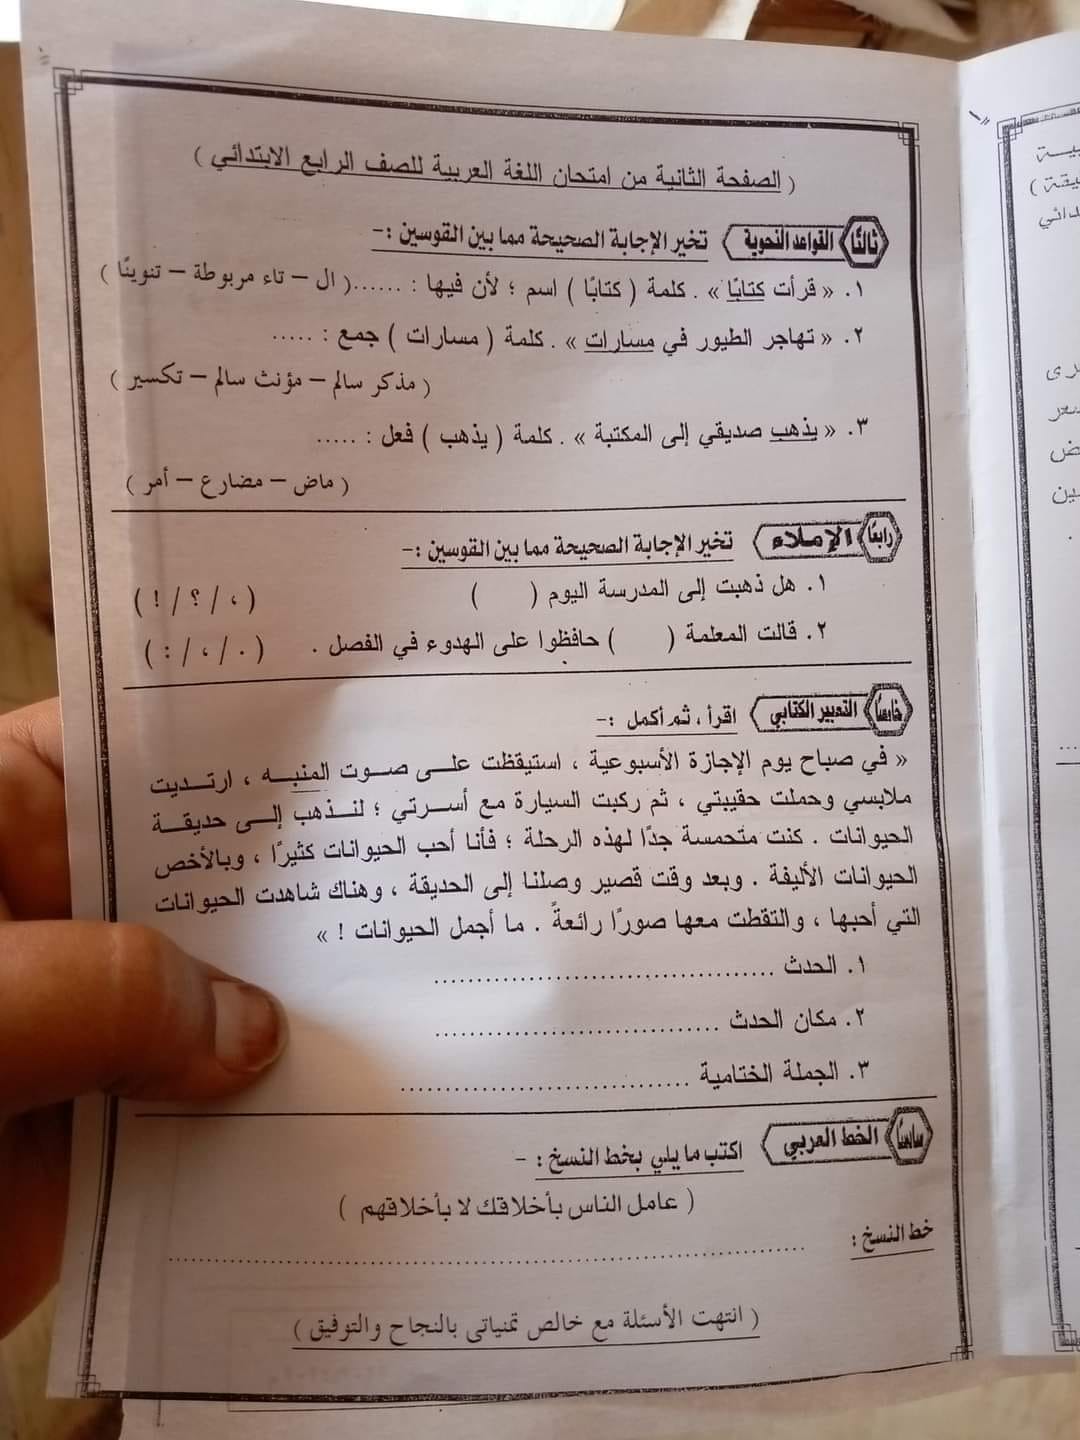 ( الصفحة الثانية من امتحان اللغة العربية للصف الرابع الابتدائي )
ثالثًا القواعد النحوية تخير الإجابة الصحيحة مما بين القوسين :-
١. « قرأت كتابًا » . كلمة ( كتابًا ) اسم ؛ لأن فيها : ......( ال – تاء مربوطة – تنوينًا )
٢. « تهاجر الطيور في مسارات » . كلمة ( مسارات ) جمع : .....
( مذكر سالم – مؤنث سالم – تكسير )
٣. « يذهب صديقي إلى المكتبة » . كلمة ( يذهب ) فعل : .....
( ماض – مضارع – أمر )
رابعًا الإملاء تخير الإجابة الصحيحة مما بين القوسين :-
١. هل ذهبت إلى المدرسة اليوم ( ) ( ، / ؟ / ! )
٢. قالت المعلمة ( ) حافظوا على الهدوء في الفصل . ( . / ، / : )
خامسًا التعبير الكتابي اقرأ ، ثم أكمل :-
« في صباح يوم الإجازة الأسبوعية ، استيقظت على صوت المنبه ، ارتديت
ملابسي وحملت حقيبتي ، ثم ركبت السيارة مع أسرتي ؛ لنذهب إلى حديقة
الحيوانات . كنت متحمسة جدًا لهذه الرحلة ؛ فأنا أحب الحيوانات كثيرًا ، وبالأخص
الحيوانات الأليفة . وبعد وقت قصير وصلنا إلى الحديقة ، وهناك شاهدت الحيوانات
التي أحبها ، والتقطت معها صورًا رائعةً . ما أجمل الحيوانات ! »
١. الحدث ..................................
٢. مكان الحدث .............................
٣. الجملة الختامية .............................
سادسًا الخط العربي اكتب ما يلي بخط النسخ : -
( عامل الناس بأخلاقك لا بأخلاقهم )
خط النسخ : ................................................................
( انتهت الأسئلة مع خالص تمنياتى بالنجاح والتوفيق )